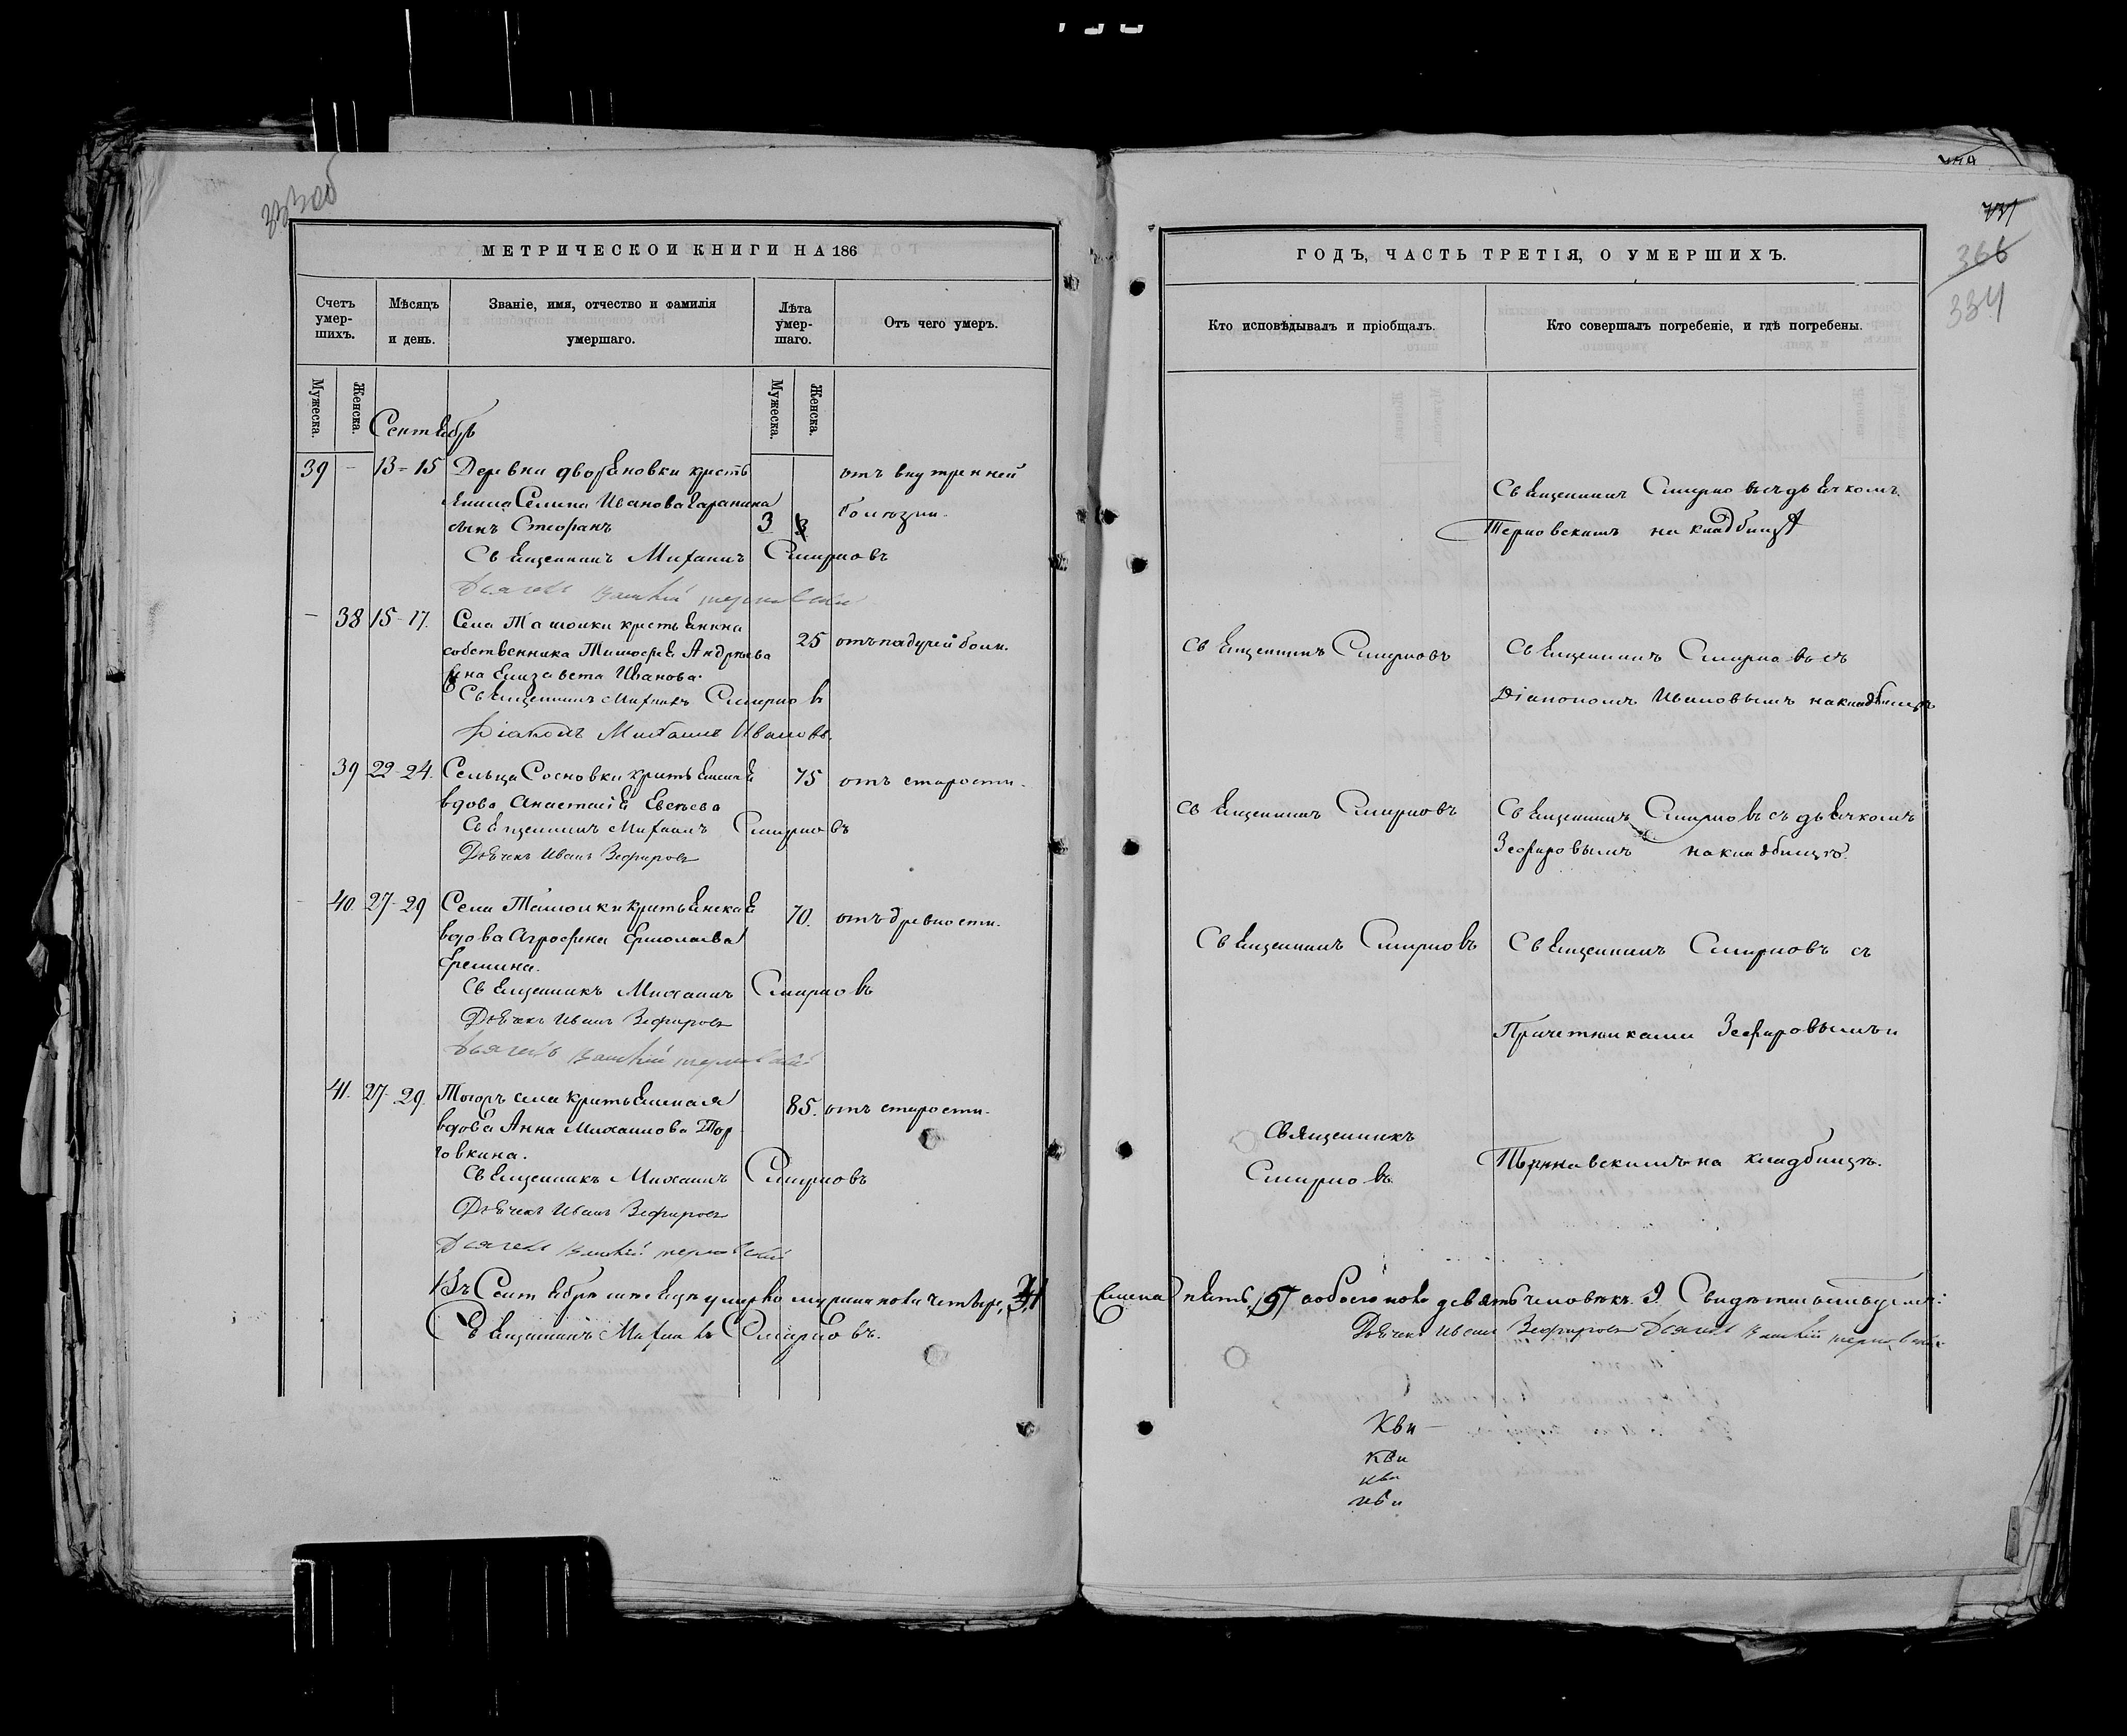 333об
334
МЕТРИЧЕСКОЙ КНИГИ НА 186
Счетъ умер-шихъ.
Мѣсяцъ и день.
Званіе, имя, отчество и фамилія умершаго.
Лѣта умер-шаго.
Отъ чего умеръ.
Мужеска.
Женска.
Мужеска.
Женска.
Сентябрь
39 – 13-15 Деревни Дворяновки кресть
янина Семина Иванова Гаранина
сынъ Стефанъ 3
отъ внутренней
болѣзни.
Священникъ Михаилъ Смирновъ
Дьячекъ терновскій
– 38 15-17. Села Ташолки крестьянина
собственника Тимофея Андрѣева 25 отъ падучей болѣ.
жена Елизавета Иванова.
Священникъ Михаилъ Смирновъ
Діаконъ Михаилъ Ивановъ.
39 22-24. Сельца Сосновки крестьянская 75 отъ старости.
вдова Анастасія Евсѣева
Священникъ Михаилъ Смирновъ
Дьячекъ Иванъ Зефировъ
40. 27-29 Села Ташолки крестьянская 70. отъ древности.
вдова Агрофена Ермолаева
Еремина.
Священникъ Михаилъ Смирновъ
Дьячекъ Иванъ Зефировъ
Дьячекъ терновскій
41. 27-29. Тогоръ села крестьянская 85. отъ старости.
вдова Анна Михаилова Тор
говкина.
Священникъ Михаилъ Смирновъ
Дьячекъ Иванъ Зефировъ
Дьячекъ терновскій
Въ Сентябрѣ мѣсяцѣ умерло мужска пола четыре, 4
Священникъ Михаилъ Смирновъ.
366
334
ГОДЪ, ЧАСТЬ ТРЕТІЯ, О УМЕРШИХЪ.
Кто исповѣдывалъ и пріобщалъ.
Кто совершалъ погребеніе, и гдѣ погребены.
Священникъ Смирновъ съ дьячкомъ
Терновскимъ на кладбищѣ
Священникъ Смирновъ
Священникъ Смирновъ съ
Діакономъ Ивановымъ на кладбищѣ
Священникъ Смирновъ
Священникъ Смирновъ съ дьячкомъ
Зефировымъ на кладбищѣ.
Священникъ Смирновъ
Священникъ Смирновъ съ
Причетниками Зефировымъ и
Священникъ
Смирновъ.
Терновскимъ на кладбищѣ.
женска пять, 5, обоего пола девять человѣкъ. 9. Свидѣтельствуемъ:
Дьячекъ Иванъ Зефировъ Дьячекъ терновскій
Кви
Кви
кви
кви